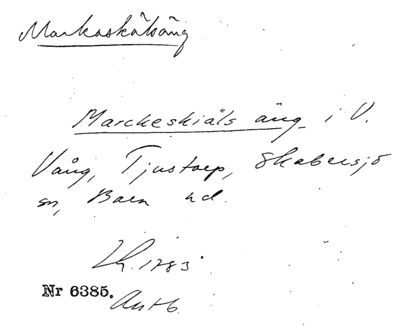 Markaskälsäng
Marckeskiäls äng i V.
Vång, Tjustorp, Skabersjö
sn, Bara hd.
Lh. 1783
Nr 6385.
Autb.